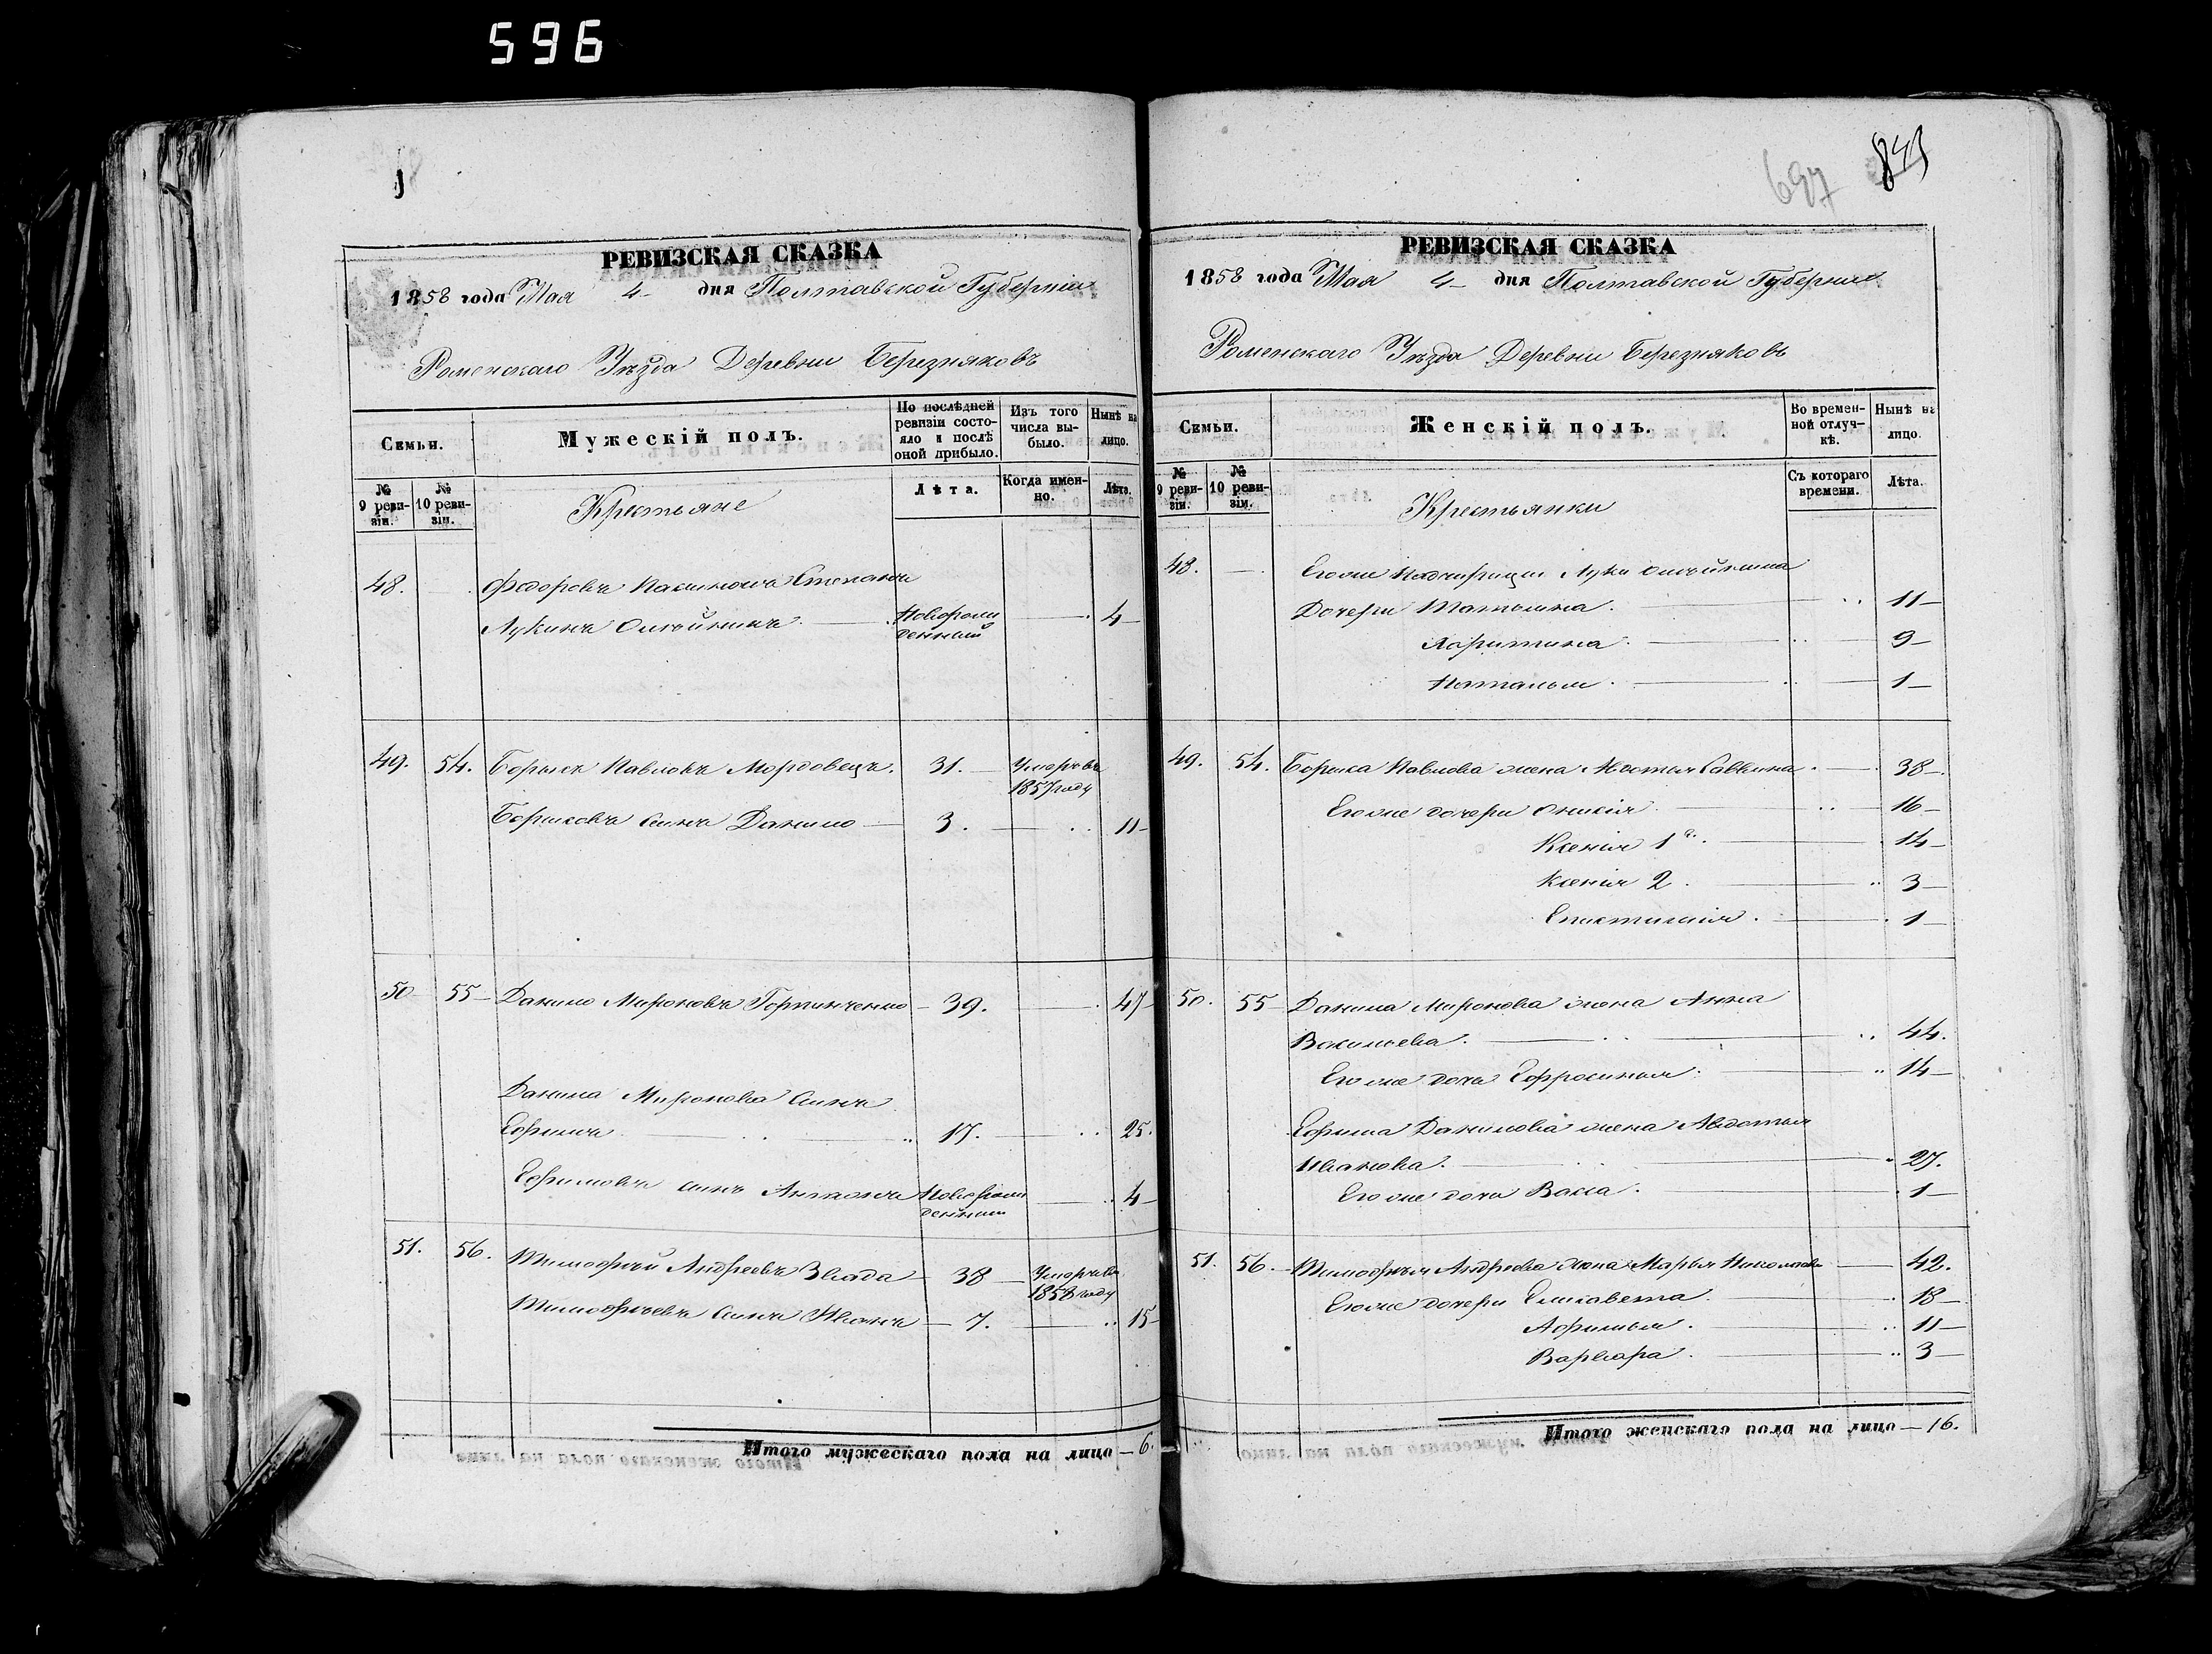 596
697 843
РЕВИЗСКАЯ СКАЗКА
1858 года Мая 4 дня Полтавской Губерніи
Роменскаго Уѣзда Деревни Березняковъ
Семьи.
Мужескій полъ.
По послѣдней ревизіи состояло и послѣ оной прибыло.
Изъ того числа выбыло.
Нынѣ на лицо.
№ 9 ревизіи.
№ 10 ревизіи.
Крестьяне
Лѣта.
Когда именно.
Лѣта.
48. Федоровъ Степанъ
Лукинъ Новорожденный 4
49. 54. Борисъ Павловъ Мордовецъ. 31. Умеръ въ 1857 году
Борисовъ сынъ Данило 3. 11
50 55 Данило Мироновъ Горпинченко 39. 47
Данила Миронова сынъ
Ефимъ 17. 25.
Ефимовъ сынъ Антонъ Новорожденный 4
51. 56. Тимофей Андреевъ Звада 38 Умеръ въ 1858 году
Тимофеевъ сынъ Иванъ 7. 15
Итого мужескаго пола на лицо — 6.
РЕВИЗСКАЯ СКАЗКА
1858 года Мая 4 дня Полтавской Губерніи
Роменскаго Уѣзда Деревни Березняковъ
Семьи.
Женскій полъ.
Во временной отлучкѣ.
Нынѣ на лицо.
№ 9 ревизіи.
№ 10 ревизіи.
Крестьянки
Съ котораго времени.
Лѣта.
48. Его же Падчерицы Луки
Дочери Татьяна 11
9
Наталья 1
49. 54. Бориса Павлова жена Саввина 38
Его же дочери 16
Ксенія 1я 14
Ксенія 2 3
1
50. 55 Данила Миронова жена Анна
Васильева 44.
Его же дочь Ефросинья 14
Ефима Данилова жена Авдотья
Иванова 27.
Его же дочь Васса 1
51. 56. Тимофея Андреева жена Марья Николаева 42.
Его же дочери Елисавета 18
Афимья 11
Варвара 3
Итого женскаго пола на лицо — 16.